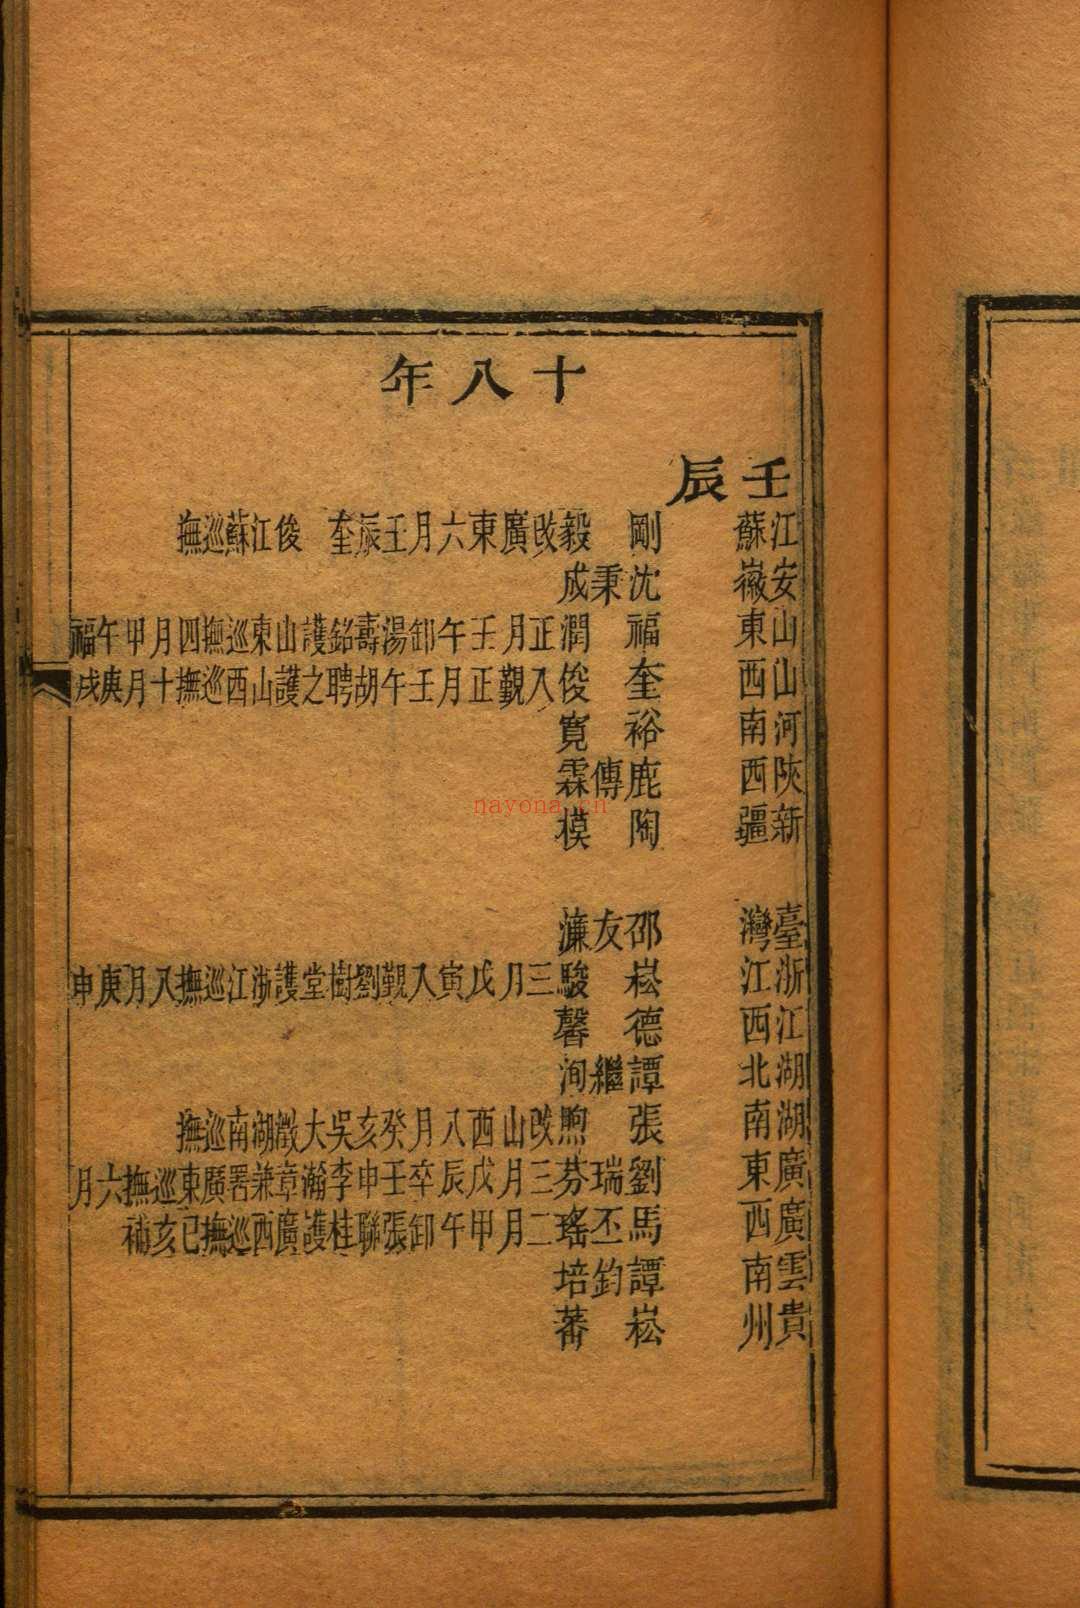 十八年
壬辰
江蘇 剛毅 改廣東六月壬辰奎俊江蘇巡撫
安徽 沈秉成
山東 福潤 正月壬午卸湯壽銘護山東巡撫四月甲午福
山西 奎俊 入覲正月壬午胡聘之護山西巡撫十月庚戌
河南 裕寬
陝西 鹿傳霖
新疆 陶模
臺灣 邵友濂
浙江 崧駿 三月戊寅入覲劉樹堂護浙江巡撫八月庚申
江西 德馨
湖北 譚繼洵
湖南 張煦 改山西八月癸亥吳大澂湖南巡撫
廣東 劉瑞芬 三月戊辰卒壬申李瀚章兼署廣東巡撫六月
廣西 馬丕瑤 二月甲午卸張聯桂護廣西巡撫已亥補
雲南 譚鈞培
貴州 崧蕃
nayona.cn